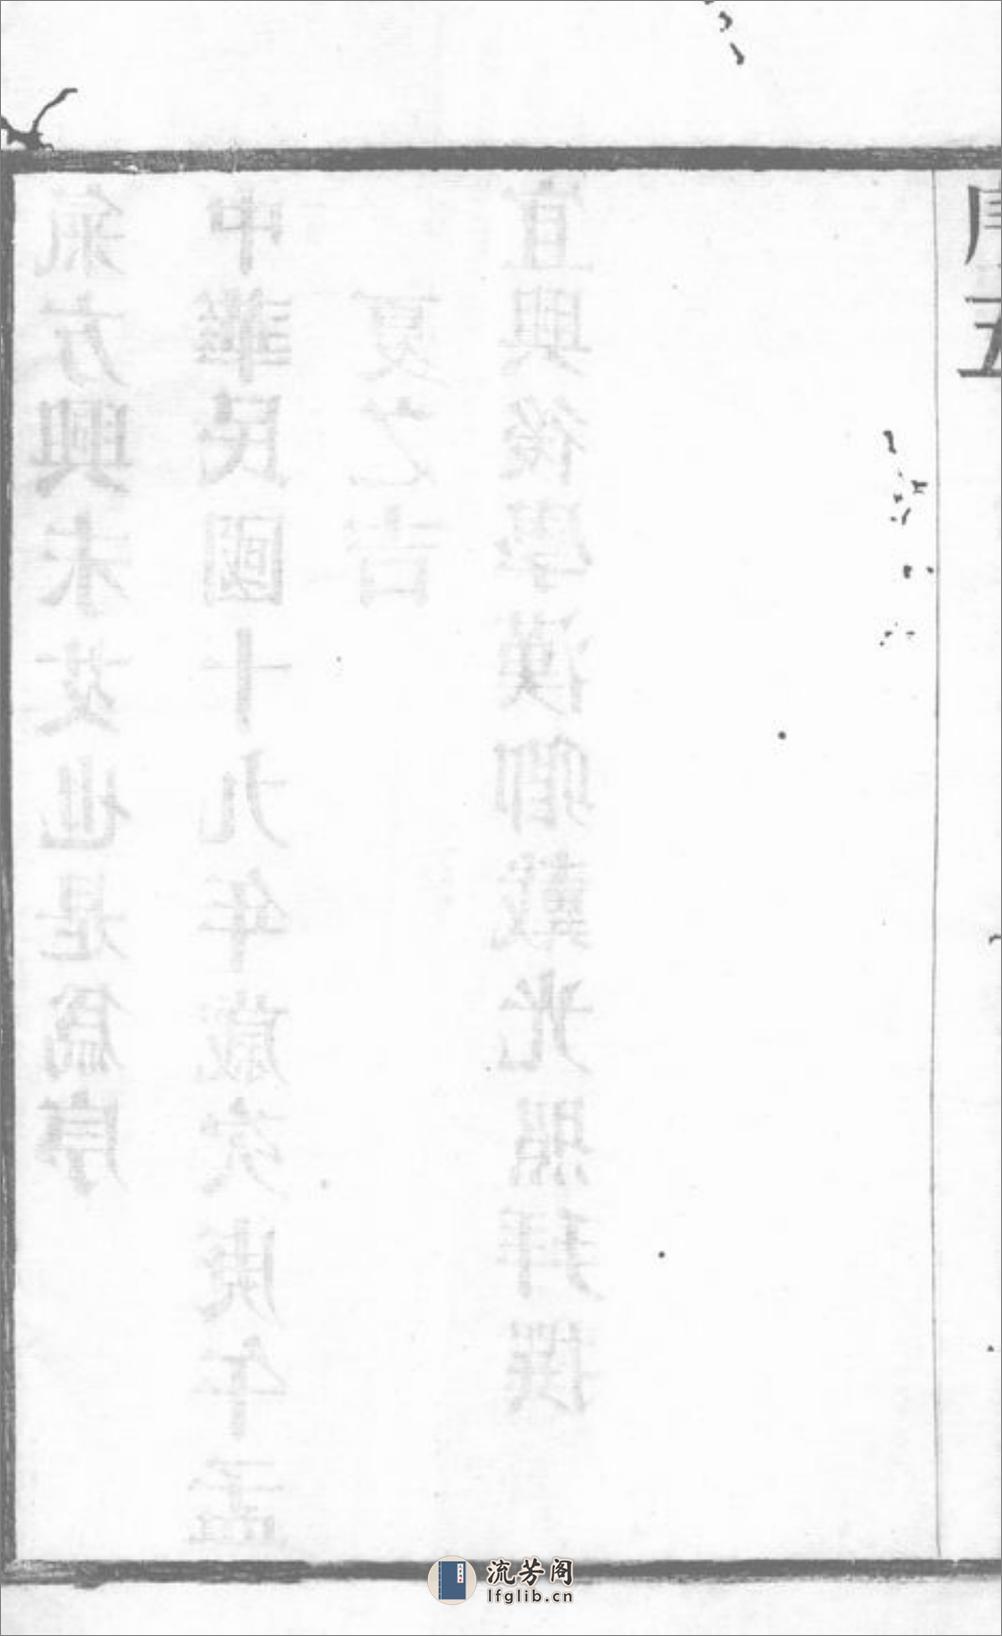 氣方興未艾也是爲序
中華民國十九年歲次庚午孟
夏之吉
宜興後學漢卿戴光照拜撰
五
流芳阁
lfglib.cn